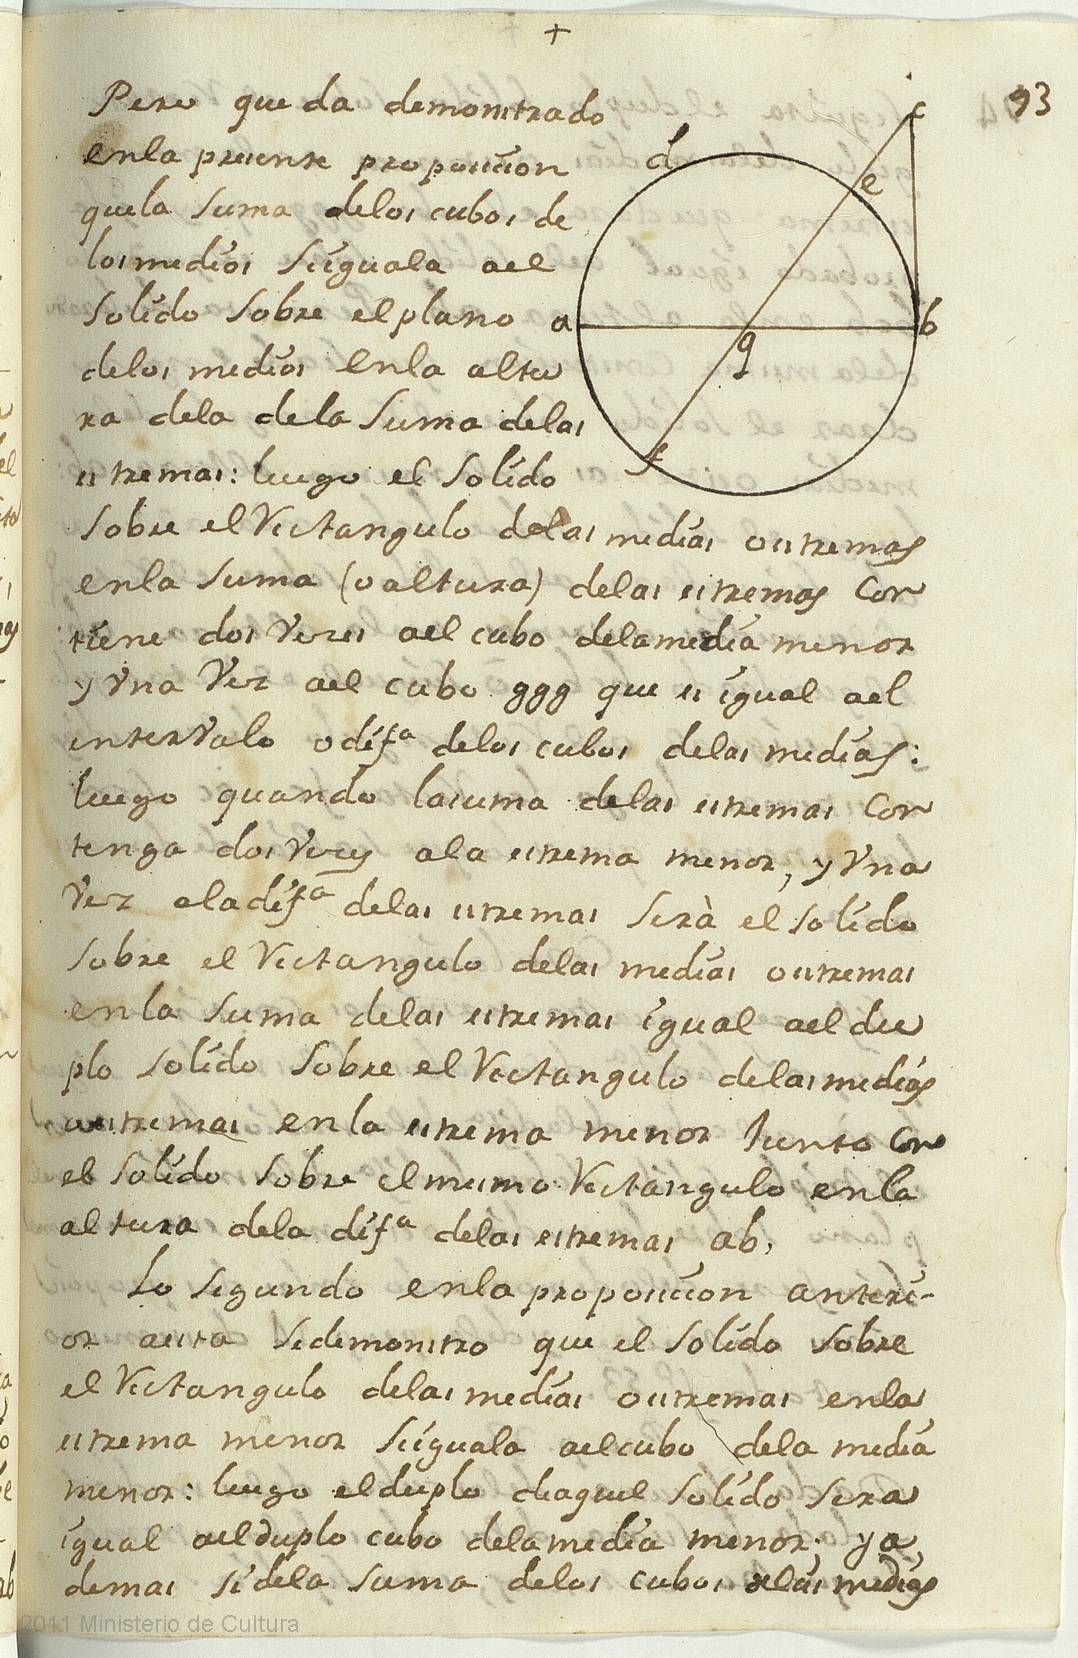 +
93
Pero que da demonstrado
enla presente proposicion
quela suma delos cubos de
los medios se iguala ael
solido sobre el plano
delos medios enla altu
ra dela dela suma delas
estremas: luego el solido
sobre el Rectangulo delas medias o estremas
enla suma (o altura) delas estremas Con
tiene dos Veces ael cubo dela media menor
y Vna Vez ael cubo ggg que es igual ael
intervalo o difª delos cubos delas medias:
luego quando la suma delas estremas Con
tenga dos Veces ala estrema menor, y Vna
Vez ala difª delas estremas Serà el solido
sobre el Rectangulo delas medias o estremas
enla suma delas estremas igual ael du
plo solido sobre el Rectangulo delas medias
o estremas enla estrema menor Junto Con
el solido sobre el mismo Rectangulo enla
altura dela difª delas estremas ab,
Lo segundo enla proposicion anteri-
or a esta se demonstro que el solido sobre
el Rectangulo delas medias o estremas enla
estrema menor se iguala ael cubo dela media
menor: luego el duplo de aquel solido sera
igual ael duplo cubo dela media menor. y a
demas si dela suma delos cubos delas medias
d
c
e
a
b
g
f
2011 Ministerio de Cultura